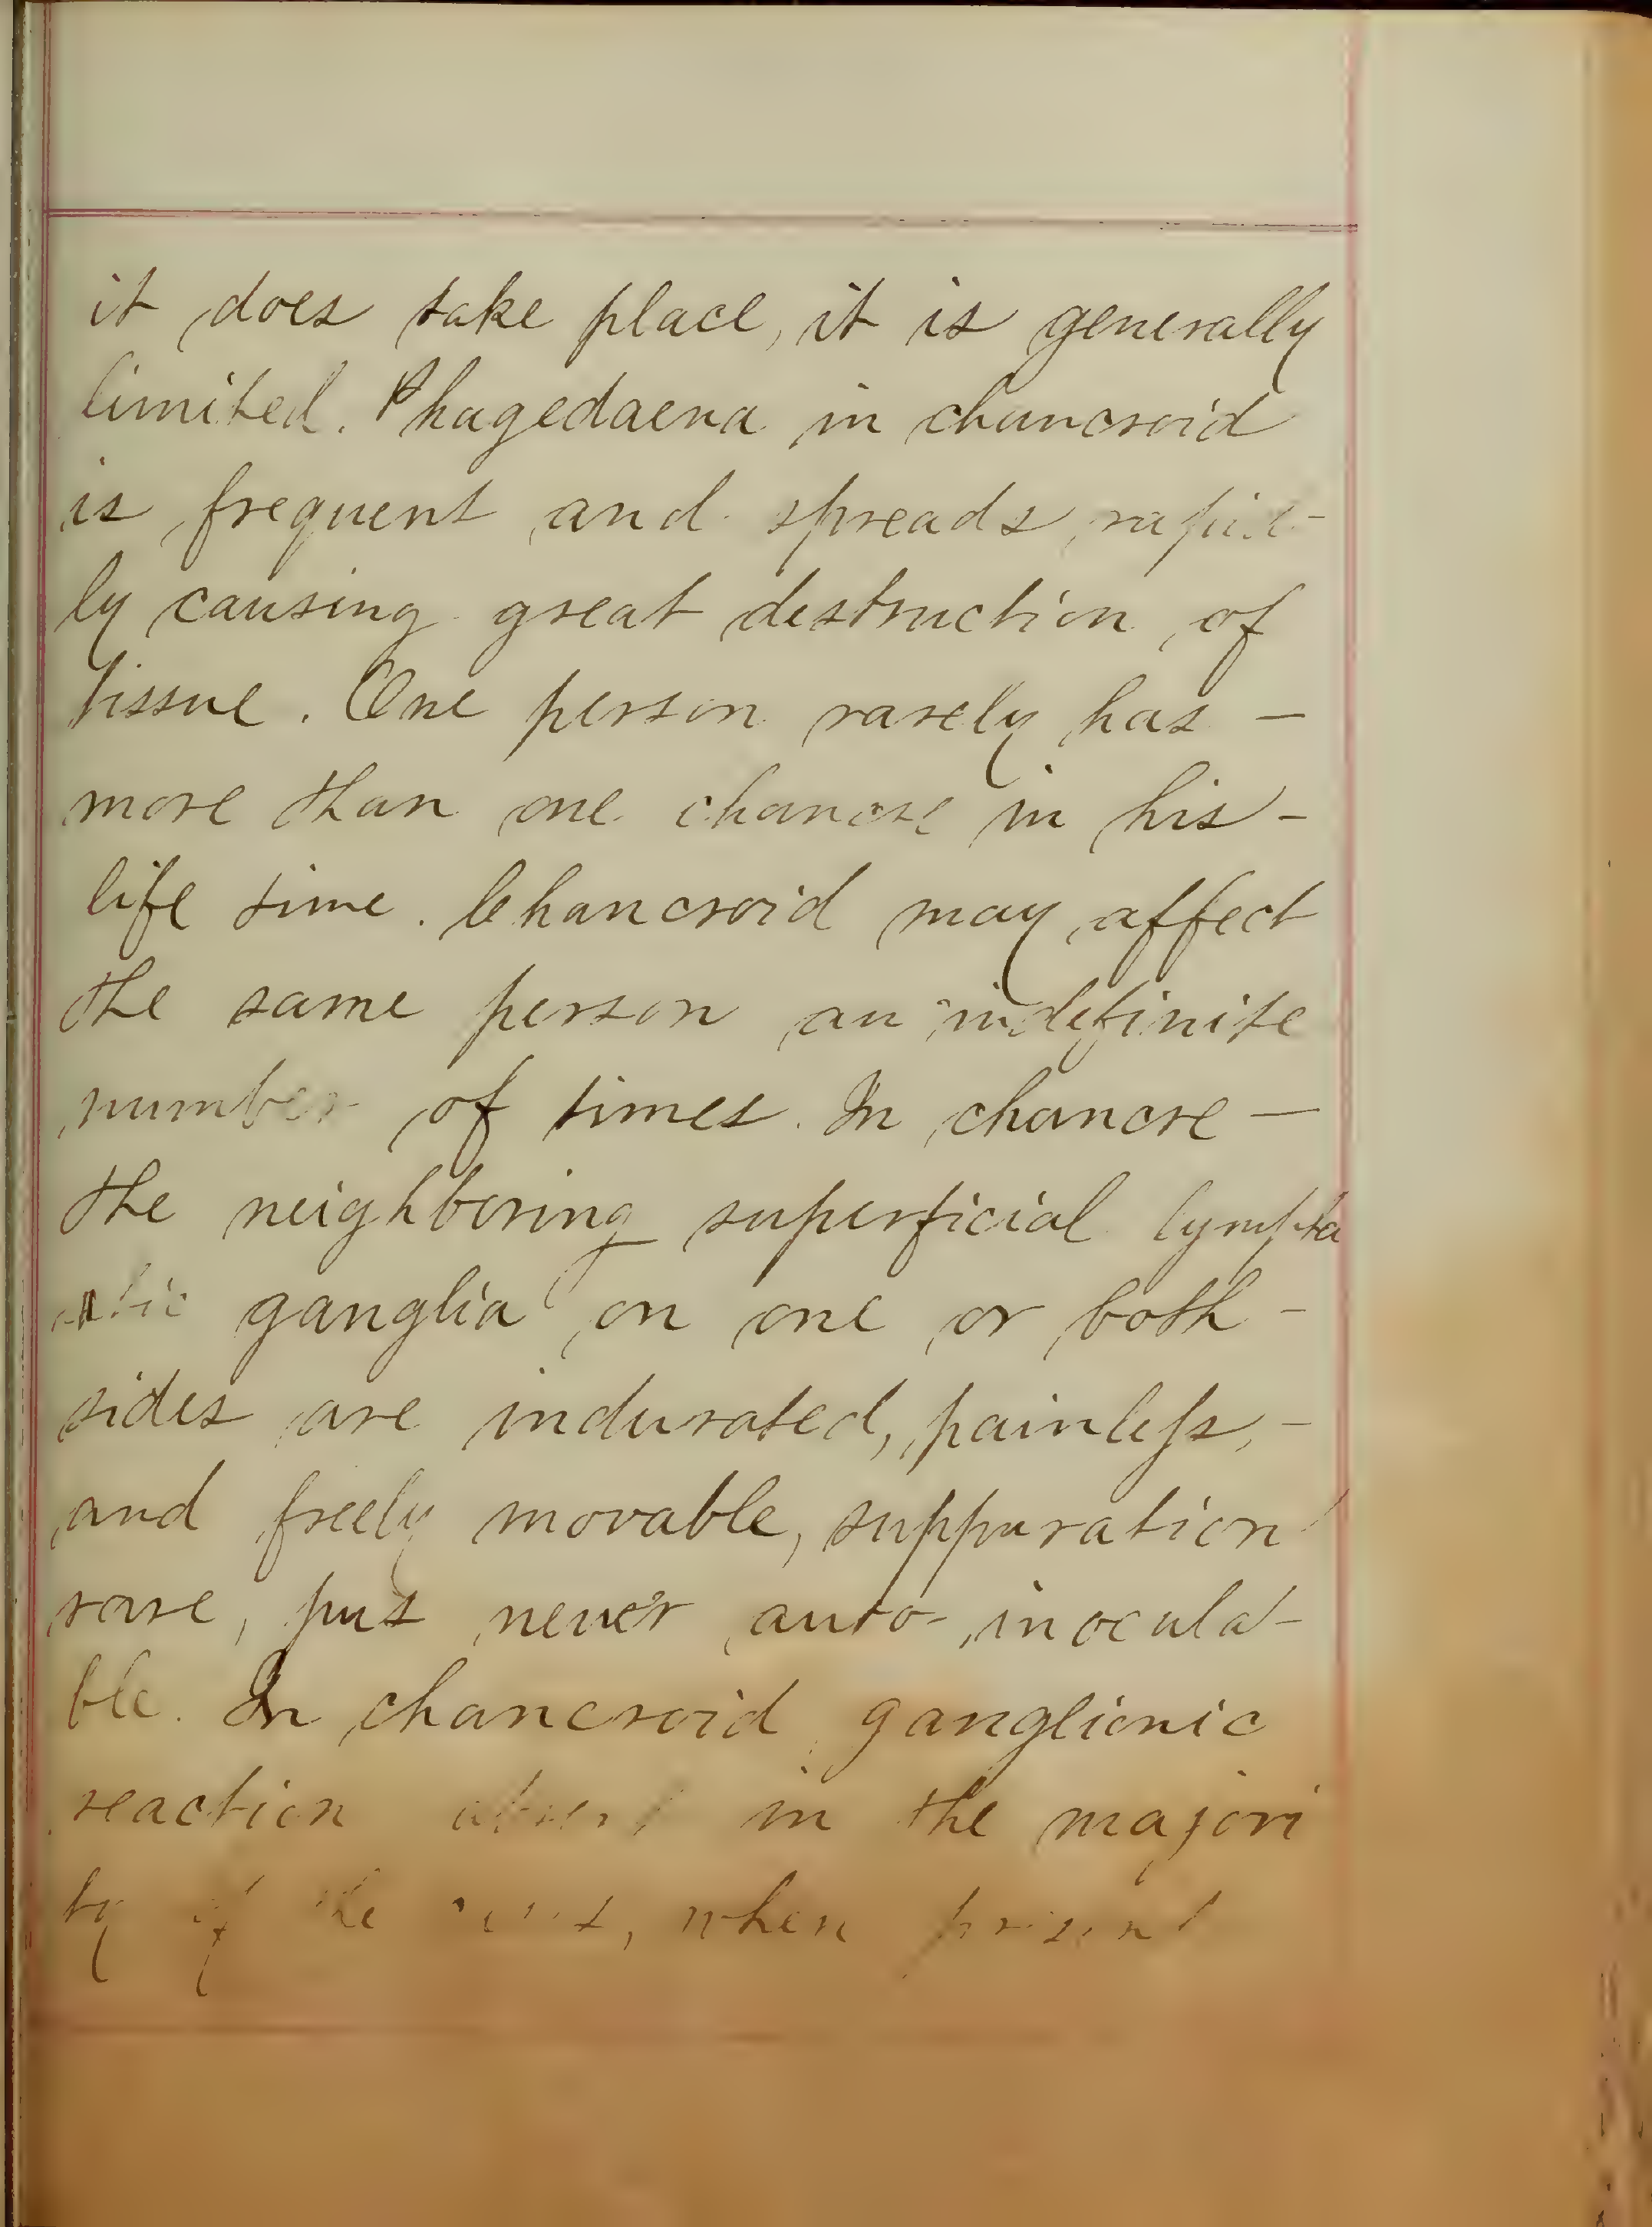 it does take place, it is generally
limited. Phagedaena in chancroid
is frequent and spreads rapid-
ly causing great destruction of
tissue. One person rarely has —
more than one chancre in his -
life time. Chancroid may affect
the same person an indefinite
number of times. In chancre —
the neighboring superficial lympha
ganglia on one or both -
sides are indurated, painless, -
and freely movable, suppuration
rare, pus never auto-inocula-
ble. In chancroid ganglionic
reaction absent in the majori
ty of the when present